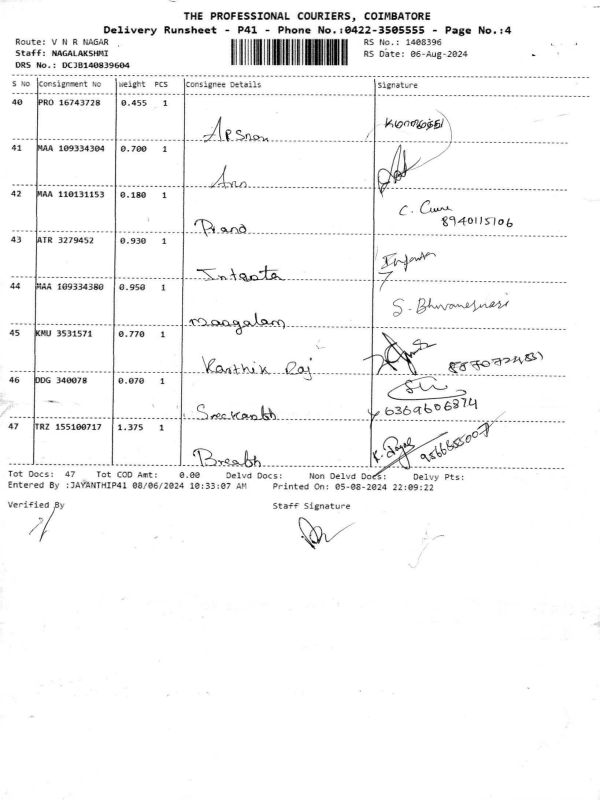 THE PROFESSIONAL COURIERS, COIMBATORE
Delivery Runsheet - P41 - Phone No.:0422-3505555 - Page No.:4
Route: V N R NAGAR RS No.: 1408396
Staff: NAGALAKSHMI RS Date: 06-Aug-2024
DRS No.: DCJB140839604
S No Consignment No Weight PCS Consignee Details Signature
40 PRO 16743728 0.455 1
Arsnan
41 MAA 109334304 0.700 1
Ann
42 MAA 110131153 0.180 1
C.
8940115106
Prand
43 ATR 3279452 0.930 1
Inteata
44 MAA 109334380 0.950 1
S. Bhuvaneswari
Mangalam
45 KMU 3531571 0.770 1
Karthik Raj
46 DDG 340078 0.070 1
6369606874
Sreekanth
47 TRZ 155100717 1.375 1
Breath
Tot Docs: 47 Tot COD Amt: 0.00 Delvd Docs: Non Delvd Docs: Delvy Pts:
Entered By :JAYANTHIP41 08/06/2024 10:33:07 AM Printed On: 05-08-2024 22:09:22
Verified By Staff Signature